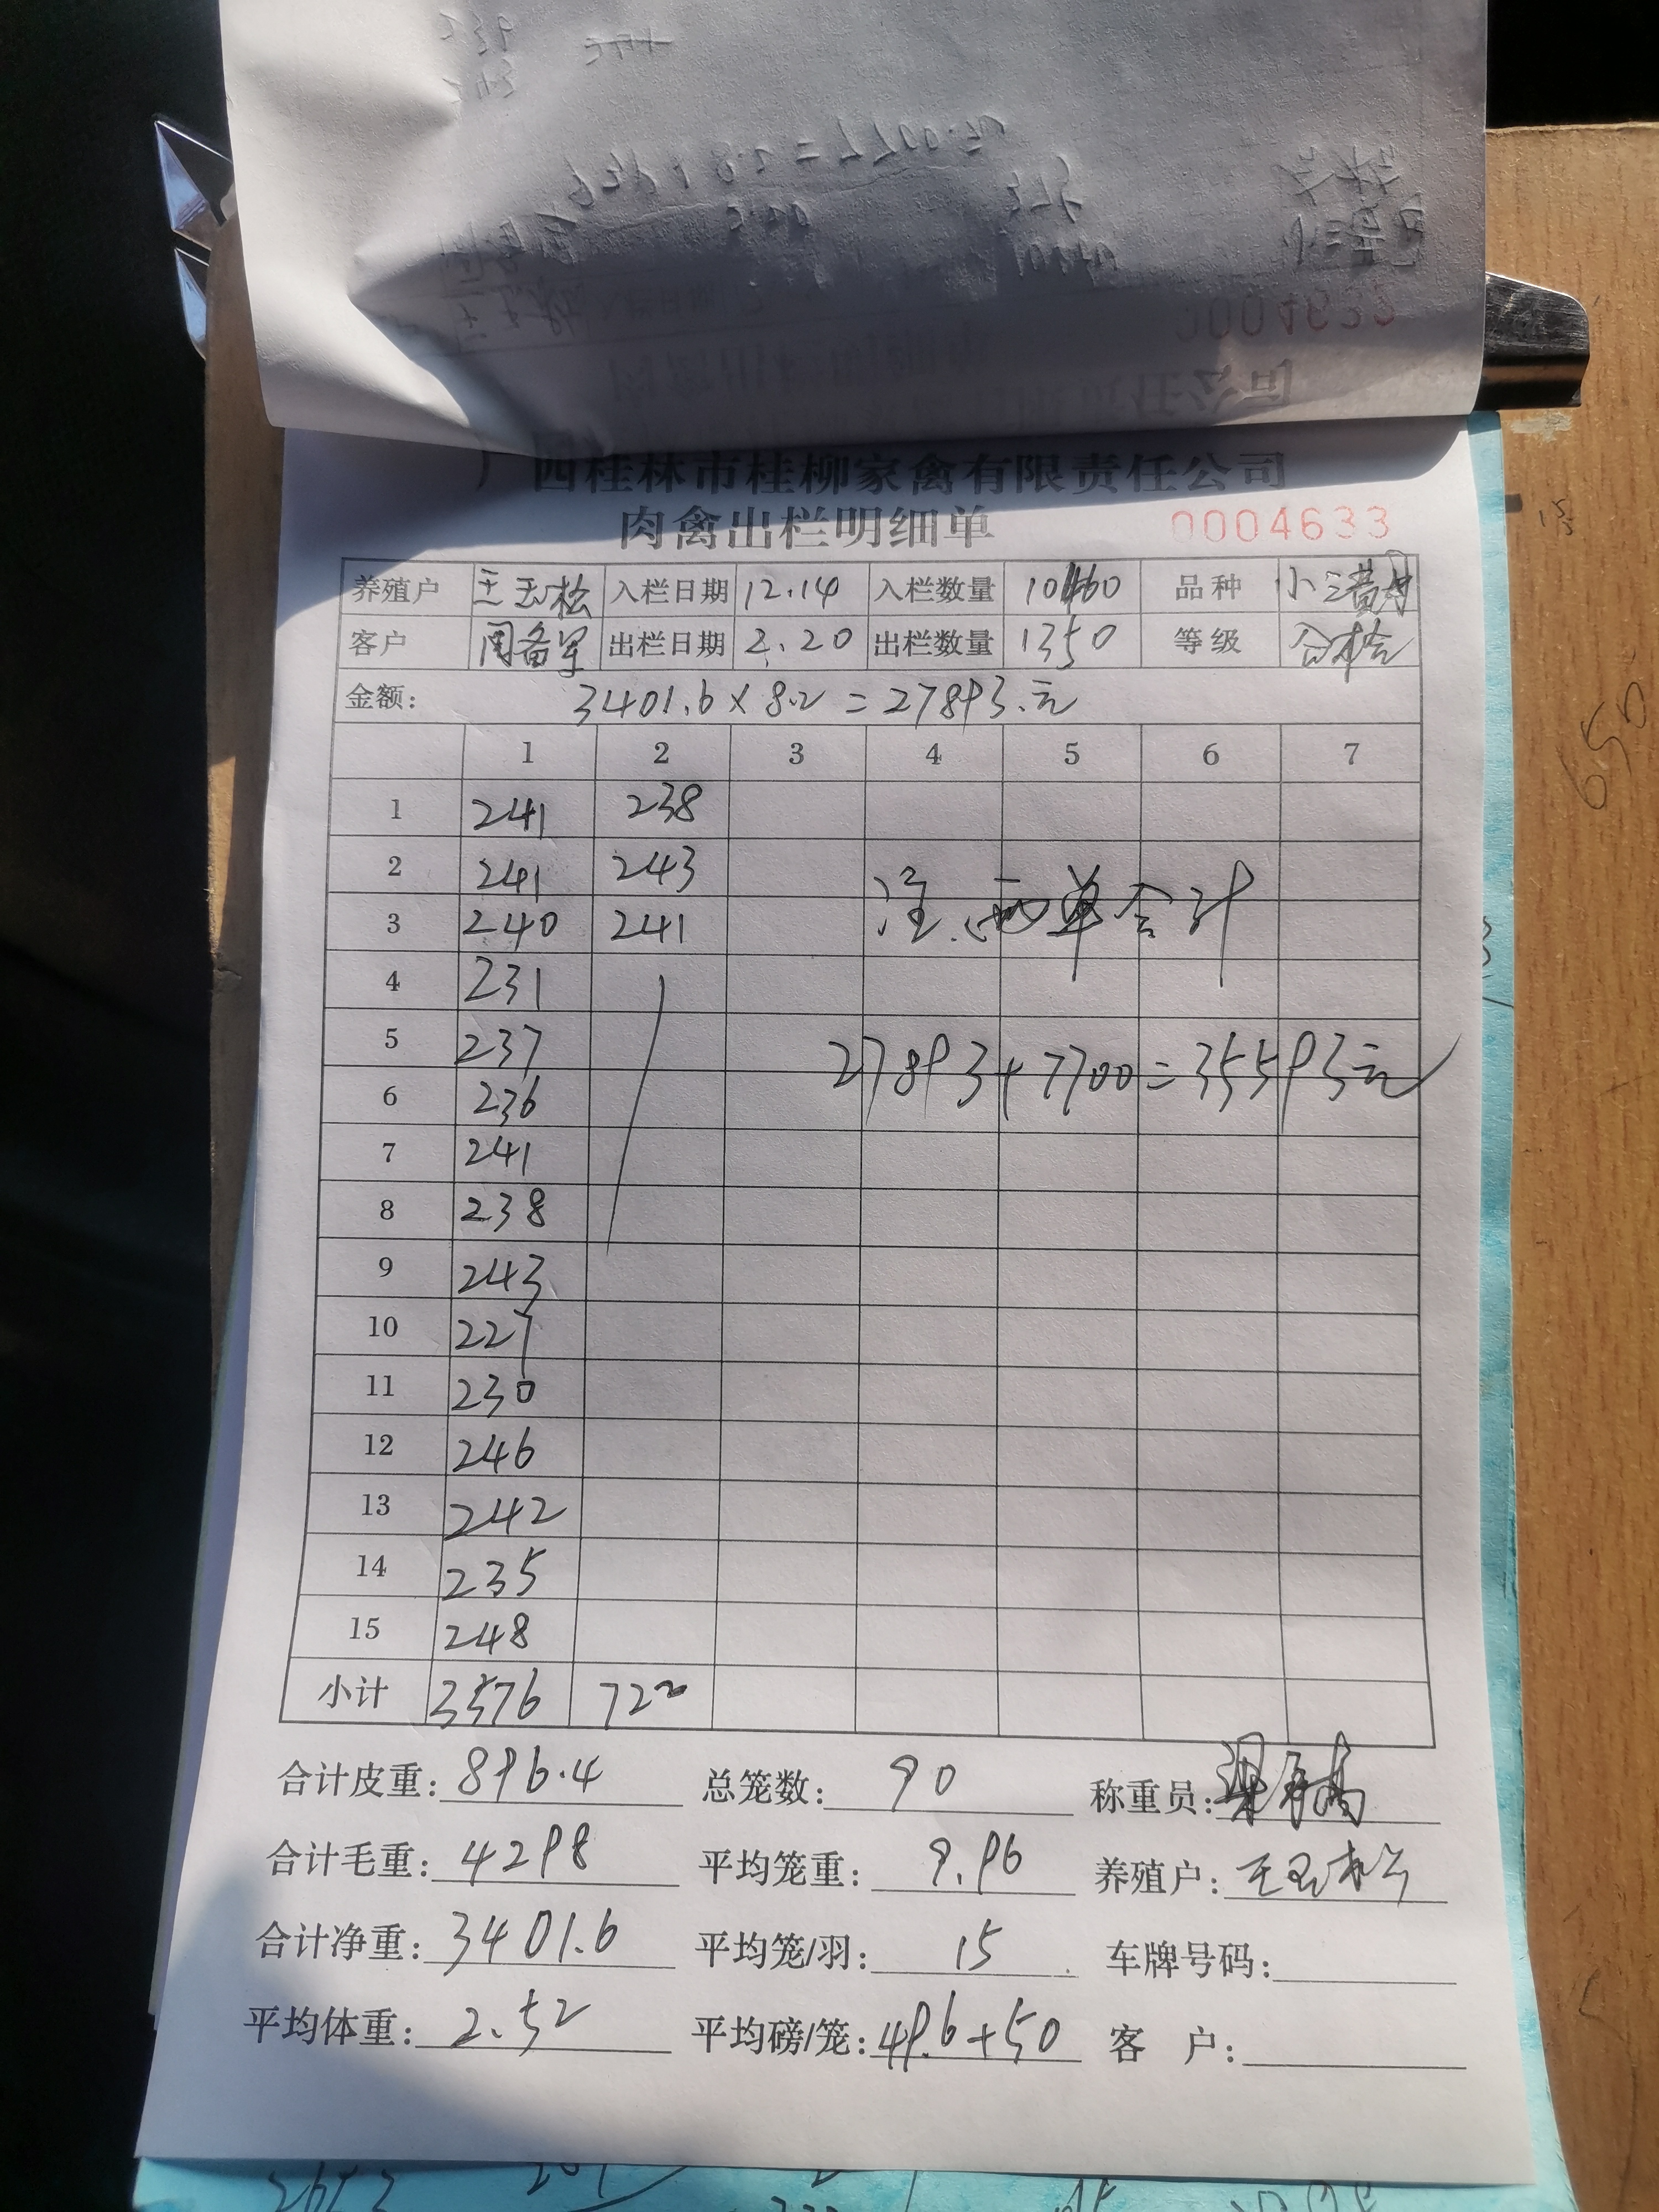 广西桂林市桂柳家禽有限责任公司
肉禽出栏明细单 0004633
养殖户 王玉松 入栏日期 12.14 入栏数量 10460 品种 小三黄
客户 周备军 出栏日期 2.20 出栏数量 1350 等级 合格
金额: 3401.6×8.2=27893.元
1 2 3 4 5 6 7
1 241 238
2 241 243
3 240 241
注、两单合计
4 231
5 237
27893+7700=35593元
6 236
7 241
8 238
9 243
10 227
11 230
12 246
13 242
14 235
15 248
小计 3576 722
合计皮重: 896.4 总笼数: 90 称重员:
合计毛重: 4298 平均笼重: 9.96 养殖户: 王玉松
合计净重: 3401.6 平均笼/羽: 15 车牌号码:
平均体重: 2.52 平均磅/笼: 49.6+50 客 户:
650